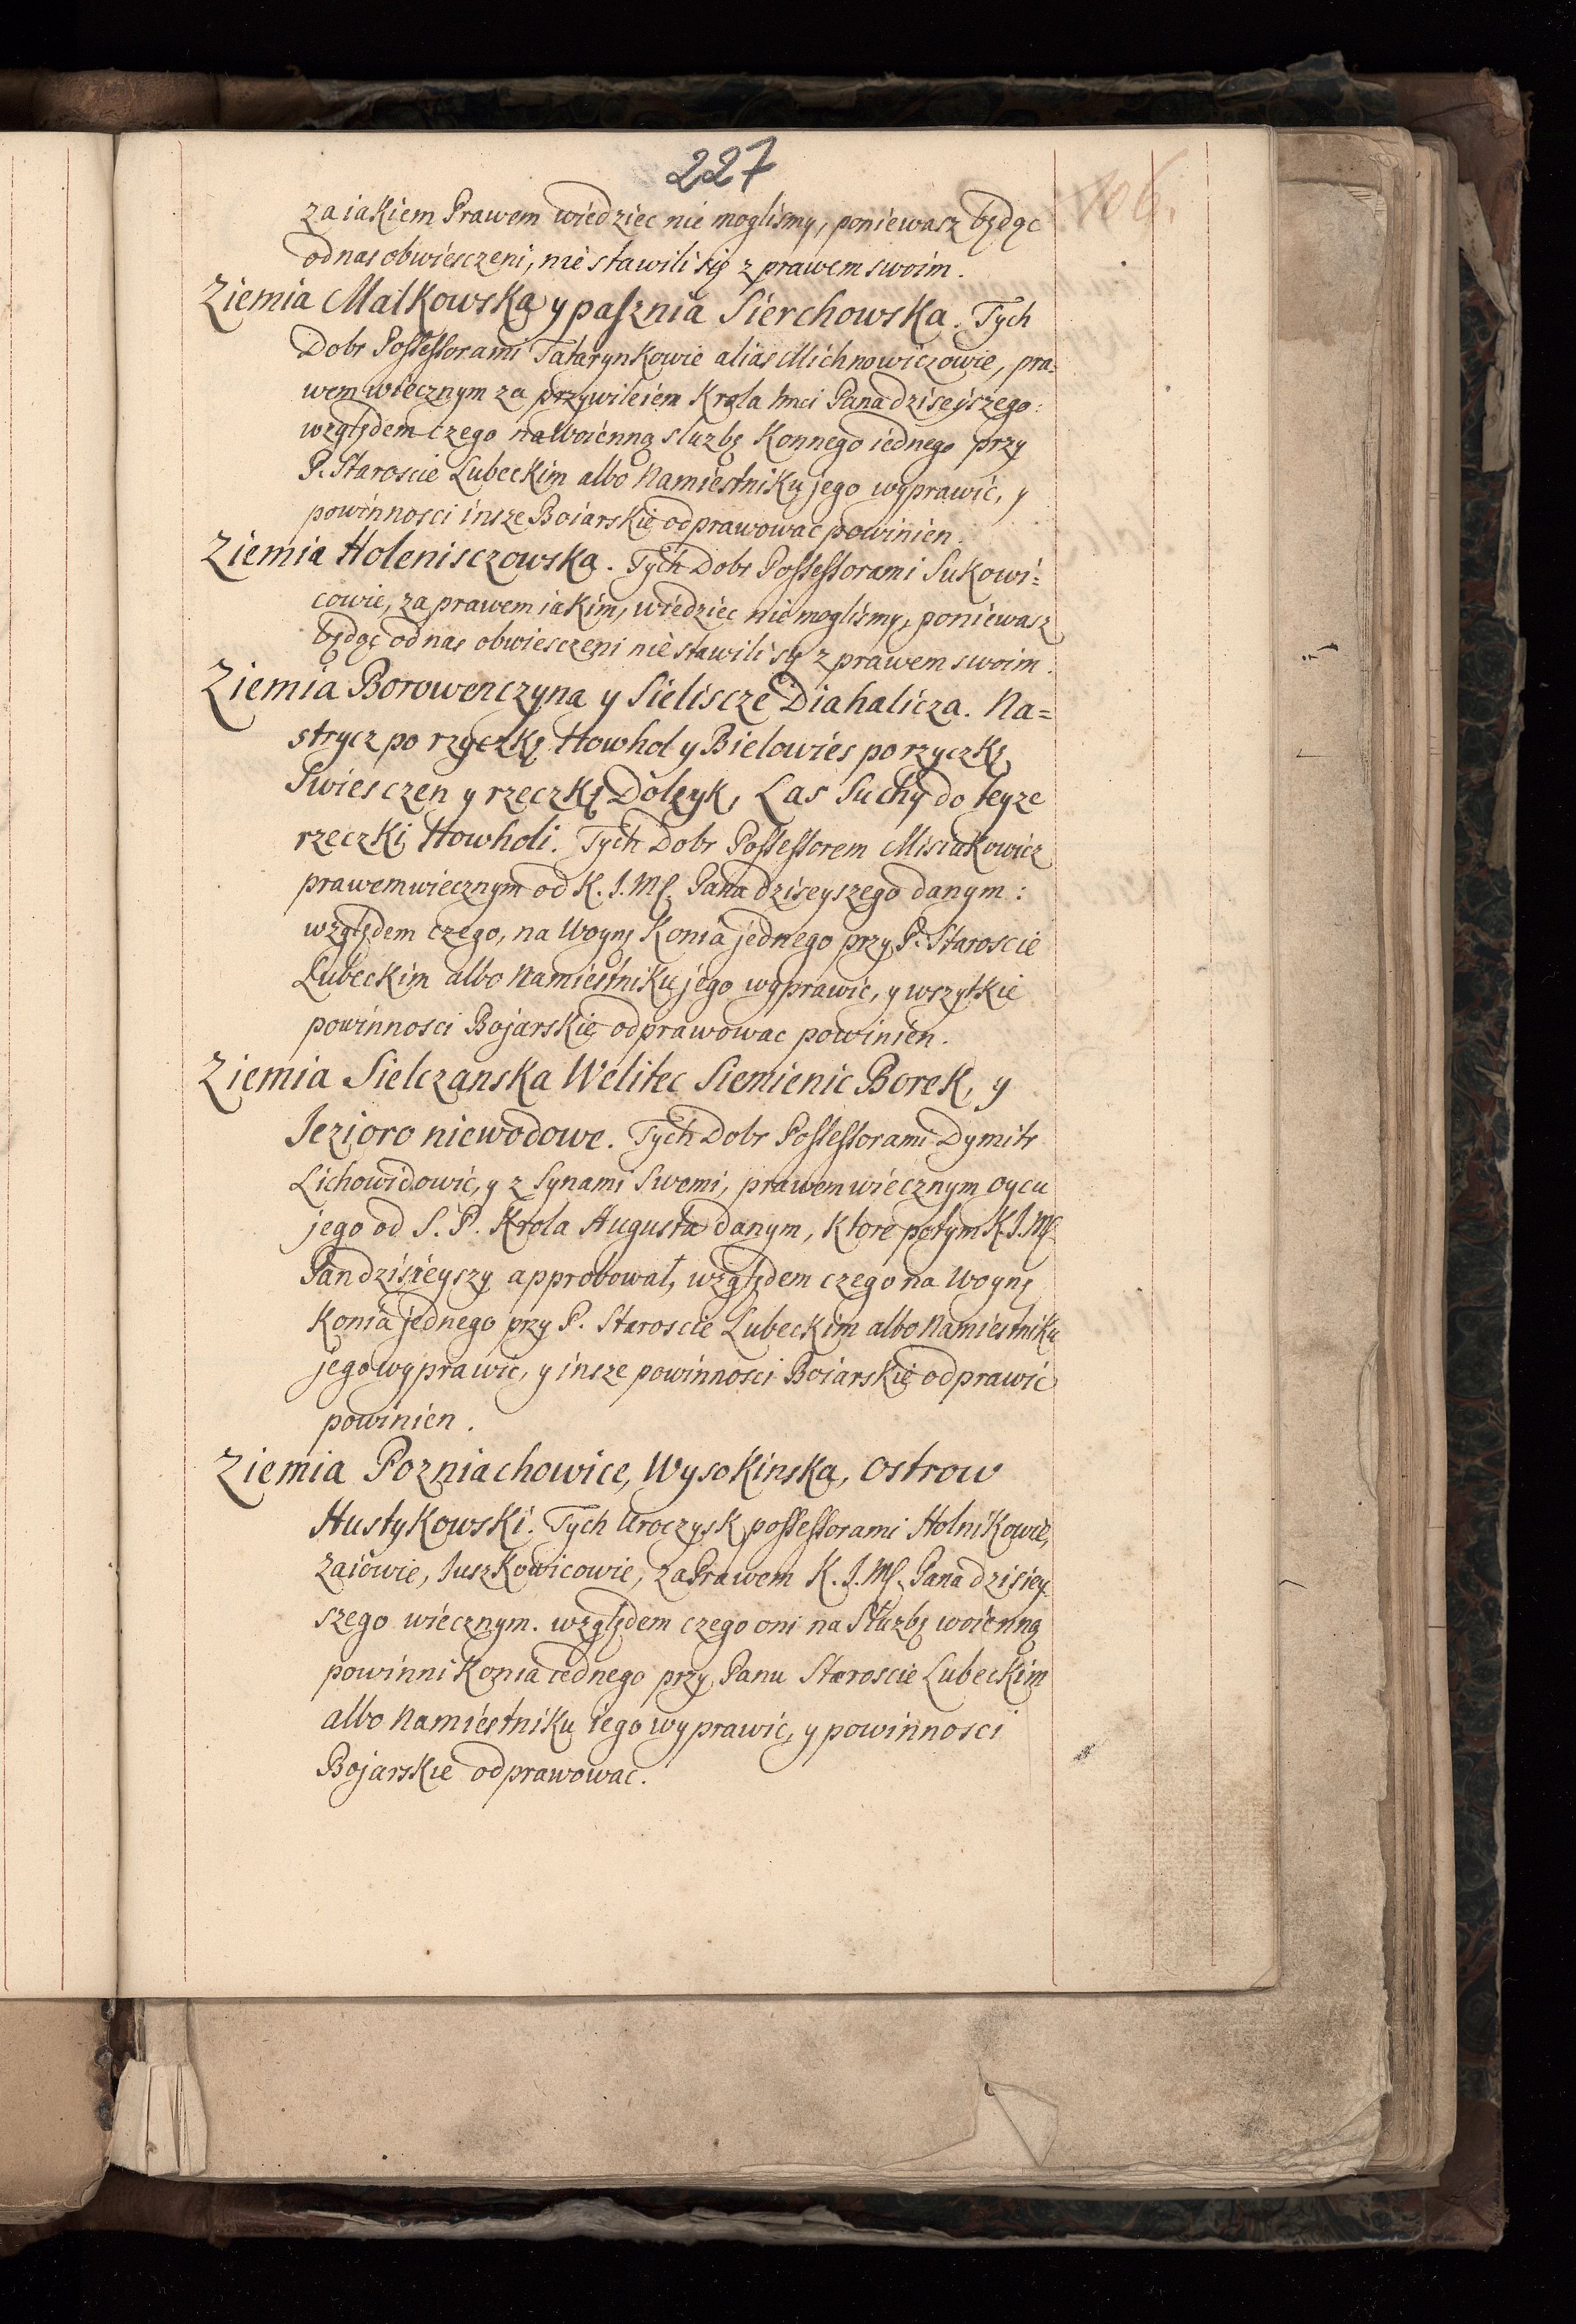 227
106.
za iakiem Prawem wiedziec nie moglismy, poniewasz będąc
od nas obwiesczeni, nie stawili się z prawem swoim.
Ziemia Malkowska y paſznia Sierchowska. Tych
Dobr Poſſeſſorami Tatarynkowie alias Michnowiczowie, pra=
wem wiecznym za przywileiem Krola Imci Pana dziseyszego:
względem czego na Woienną sluzbę Konnego iednego przy
P. Staroscie Lubeckim albo Namiestniku jego wyprawić, y
powinnosci insze Boiarskie odprawowac powinien.
Ziemia Holenisczowska. Tych Dobr Poſſeſſorami Sukowi=
cowie, za prawem iakim, wiedziec nie moglismy, poniewasz
będąc od nas obwiesczeni nie stawili się z prawem swoim.
Ziemia Borowenczyna y Sieliscze Diahalicza. Na=
strycz po rzyczkę Howhol y Bielowies po rzyczkę
Swiesczen y rzeczkę Dolzyk, Las Suchy do teyze
rzeczki Howholi. Tych Dobr Poſſeſſorem Misiakowicz
prawem wiecznym od K. J. Mſ. Pana dziseyszego danym:
względem czego, na Woynę Konia jednego przy P. Staroscie
Lubeckim albo Namiestniku jego wyprawic, y wszytkie
powinnosci Bojarskie odprawowac powinien.
Ziemia Sielczanska Welitec Siemienic Borek, y
Jezioro niewodowe. Tych Dobr Poſſeſſorami Dymitr
Lichowidowić, y z Synami Swemi, prawem wiecznym oycu
jego od S. P. Krola Augusta danym, Ktore potym K. J. Mſ.
Pan dzisieyszy approbował, względem czego na Woynę
Konia jednego przy P. Staroscie Lubeckim albo Namiestniku
jego wyprawic, y insze powinnosci Boiarskie odprawić
powinien.
Ziemia Pozniachowice, Wysokinska, Ostrow
Hustykowski. Tych Uroczysk poſſeſſorami Holnikowie,
Zaiowie, Juszkowicowie, za Prawem K. J. Mſ. Pana dzisiey=
szego wiecznym. względem czego oni na Służbę woienną
powinni Konia iednego przy Panu Staroscie Lubeckim
albo Namiestniku iego wyprawić, y powinnosci
Bojarskie odprawowac.